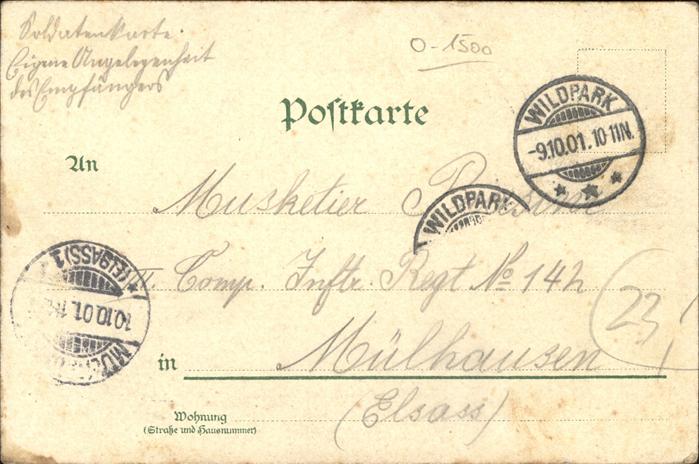 Soldatenkarte.
Eigene Angelegenheit
des Empfängers
0-1500
Postkarte
WILDPARK
-9.10.01. 10-11N.
An
Musketier
WILDPARK
Comp. Inftr. Regt № 142
23
(ELSASS) 1
10.10.01.
in Mülhausen
(Elsass)
Wohnung
(Straße und Hausnummer)